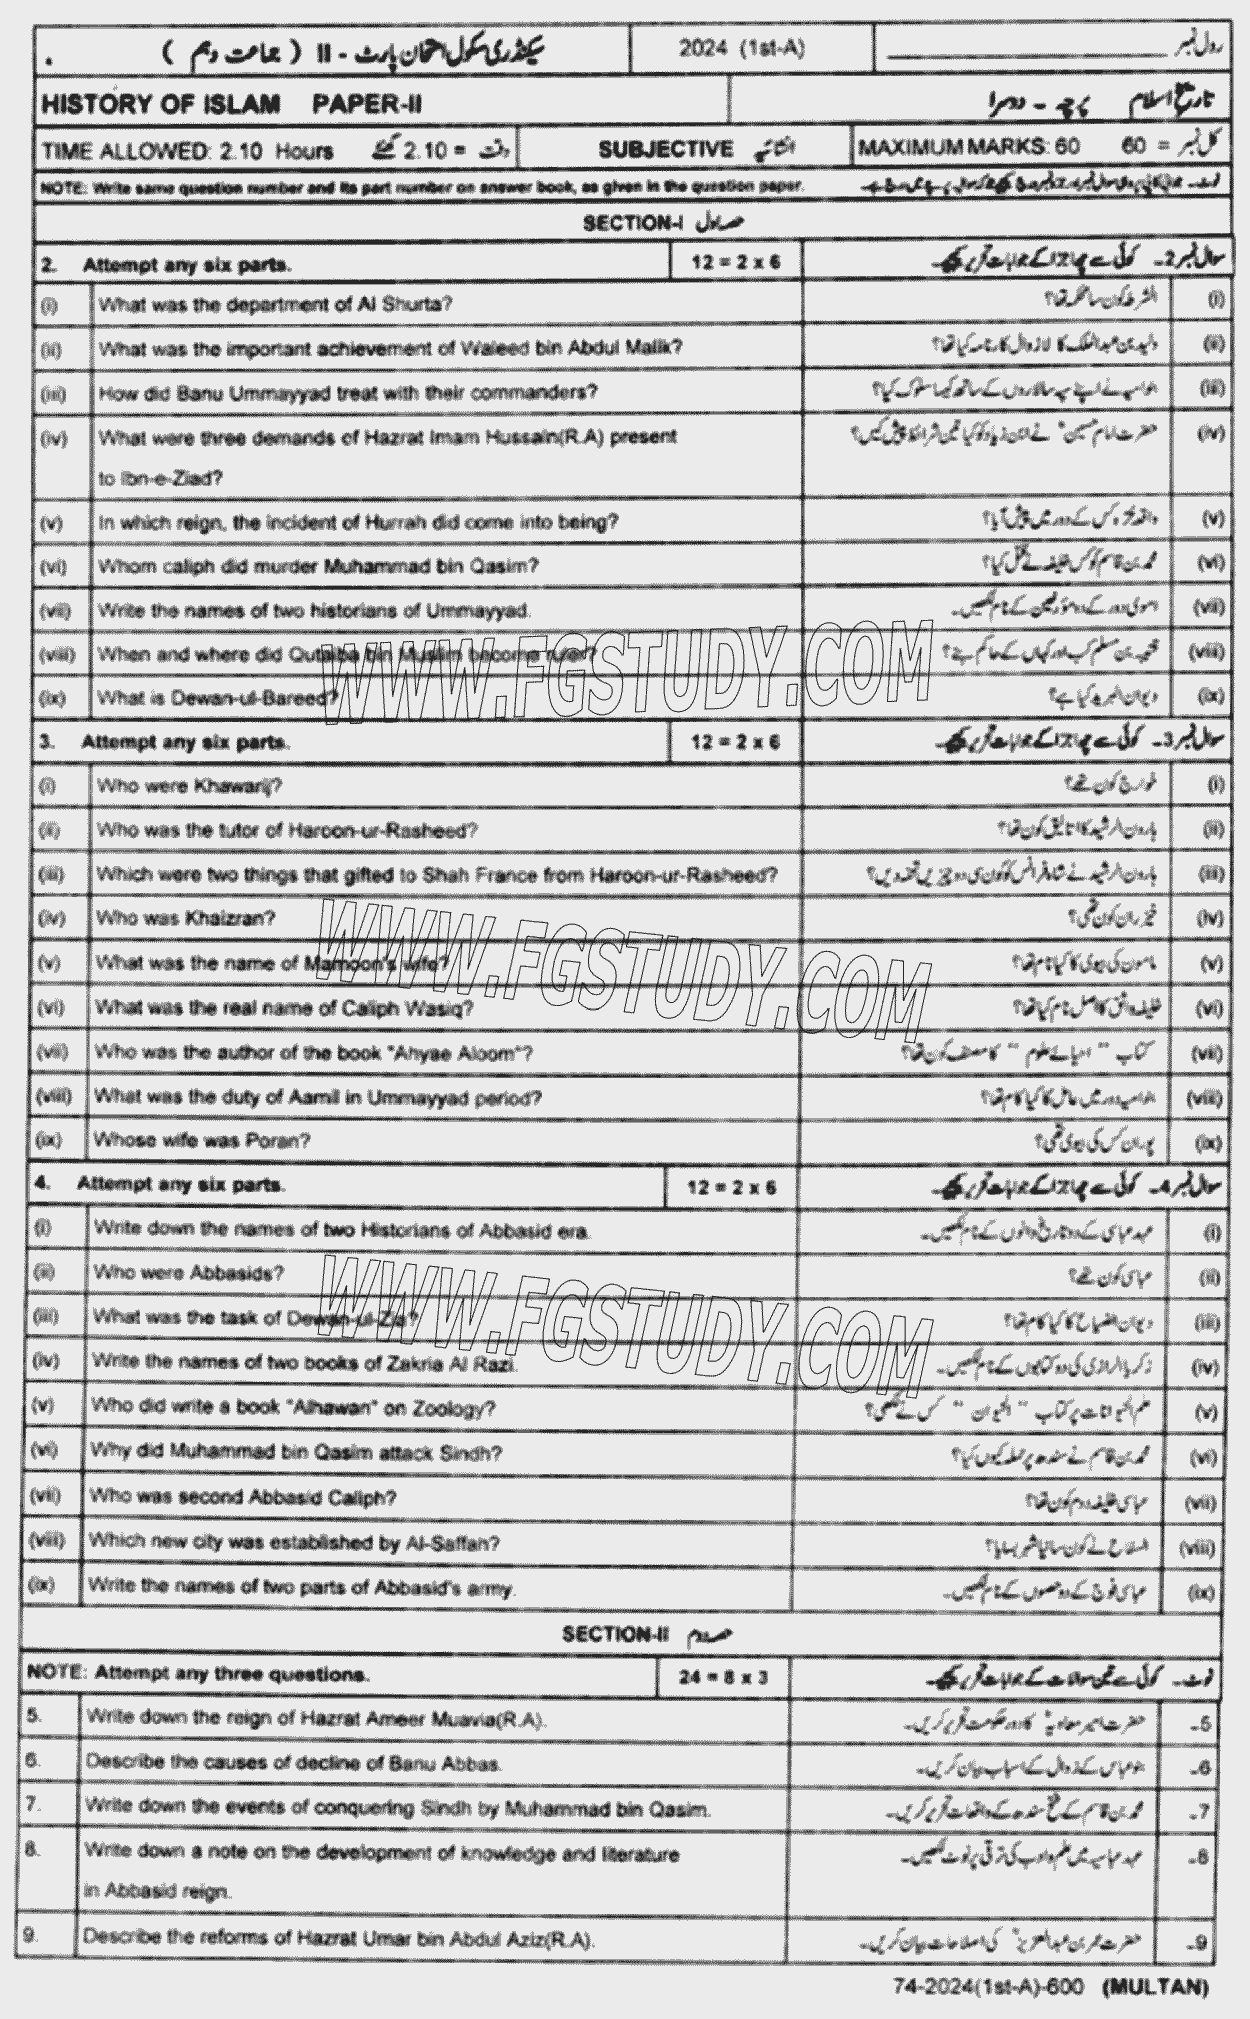 سیکنڈری سکول امتحان پارٹ - II ( جماعت دہم )
2024 (1st-A)
رول نمبر
HISTORY OF ISLAM PAPER-II
تاریخ اسلام پرچہ - دوسرا
TIME ALLOWED: 2.10 Hours وقت = 2.10 گھنٹے
SUBJECTIVE انشائیہ
MAXIMUM MARKS: 60 کل نمبر = 60
NOTE: Write same question number and its part number on answer book, as given in the question paper.
SECTION-I حصہ اول
2. Attempt any six parts. 12 = 2 x 6 سوال نمبر 2۔ کوئی سے چھ اجزا کے جوابات تحریر کیجئے۔
(i) What was the department of Al Shurta? الشرطہ کون سا محکمہ تھا؟ (i)
(ii) What was the important achievement of Waleed bin Abdul Malik? ولید بن عبدالملک کا لازوال کارنامہ کیا تھا؟ (ii)
(iii) How did Banu Ummayyad treat with their commanders? بنو امیہ نے اپنے سپہ سالاروں کے ساتھ کیسا سلوک کیا؟ (iii)
(iv) What were three demands of Hazrat Imam Hussain(R.A) present حضرت امام حسینؓ نے ابن زیاد کو کیا تین شرائط پیش کیں؟ (iv)
to Ibn-e-Ziad?
(v) In which reign, the incident of Hurrah did come into being? واقعہ حرہ کس کے دور میں پیش آیا؟ (v)
(vi) Whom caliph did murder Muhammad bin Qasim? محمد بن قاسم کو کس خلیفہ نے قتل کیا؟ (vi)
(vii) Write the names of two historians of Ummayyad. اموی دور کے دو مؤرخین کے نام لکھیں۔ (vii)
(viii) When and where did Qutaiba bin Muslim become ruler? قتیبہ بن مسلم کب اور کہاں کے حاکم بنے؟ (viii)
(ix) What is Dewan-ul-Bareed? دیوان البرید کیا ہے؟ (ix)
WWW.FGSTUDY.COM
3. Attempt any six parts. 12 = 2 x 6 سوال نمبر 3۔ کوئی سے چھ اجزا کے جوابات تحریر کیجئے۔
(i) Who were Khawarij? خوارج کون تھے؟ (i)
(ii) Who was the tutor of Haroon-ur-Rasheed? ہارون الرشید کا اتالیق کون تھا؟ (ii)
(iii) Which were two things that gifted to Shah France from Haroon-ur-Rasheed? ہارون الرشید نے شاہ فرانس کو کون سی دو چیزیں تحفہ دیں؟ (iii)
(iv) Who was Khaizran? خیزران کون تھی؟ (iv)
(v) What was the name of Mamoon's wife? مامون کی بیوی کا کیا نام تھا؟ (v)
(vi) What was the real name of Caliph Wasiq? خلیفہ واثق کا اصل نام کیا تھا؟ (vi)
WWW.FGSTUDY.COM
(vii) Who was the author of the book "Ahyae Aloom"? کتاب " احیائے علوم " کا مصنف کون تھا؟ (vii)
(viii) What was the duty of Aamil in Ummayyad period? بنو امیہ دور میں عامل کا کیا کام تھا؟ (viii)
(ix) Whose wife was Poran? پوران کس کی بیوی تھی؟ (ix)
4. Attempt any six parts. 12 = 2 x 6 سوال نمبر 4۔ کوئی سے چھ اجزا کے جوابات تحریر کیجئے۔
(i) Write down the names of two Historians of Abbasid era. عہد عباسی کے دو تاریخ دانوں کے نام لکھیں۔ (i)
(ii) Who were Abbasids? عباسی کون تھے؟ (ii)
(iii) What was the task of Dewan-ul-Zia? دیوان الضیاع کا کیا کام تھا؟ (iii)
WWW.FGSTUDY.COM
(iv) Write the names of two books of Zakria Al Razi. زکریا الرازی کی دو کتابوں کے نام لکھیں۔ (iv)
(v) Who did write a book "Alhawan" on Zoology? علم الحیوانات پر کتاب " الحیوان " کس نے لکھی؟ (v)
(vi) Why did Muhammad bin Qasim attack Sindh? محمد بن قاسم نے سندھ پر حملہ کیوں کیا؟ (vi)
(vii) Who was second Abbasid Caliph? عباسی خلیفہ دوم کون تھا؟ (vii)
(viii) Which new city was established by Al-Saffah? السفاح نے کون سا نیا شہر بسایا؟ (viii)
(ix) Write the names of two parts of Abbasid's army. عباسی فوج کے دو حصوں کے نام لکھیں۔ (ix)
SECTION-II حصہ دوم
NOTE: Attempt any three questions. 24 = 8 x 3 نوٹ۔ کوئی سے تین سوالات کے جوابات تحریر کیجئے۔
5. Write down the reign of Hazrat Ameer Muavia(R.A). حضرت امیر معاویہؓ کا دور حکومت تحریر کریں۔ 5۔
6. Describe the causes of decline of Banu Abbas. بنو عباس کے زوال کے اسباب بیان کریں۔ 6۔
7. Write down the events of conquering Sindh by Muhammad bin Qasim. محمد بن قاسم کے فتح سندھ کے واقعات تحریر کریں۔ 7۔
8. Write down a note on the development of knowledge and literature عہد عباسیہ میں علم و ادب کی ترقی پر نوٹ لکھیں۔ 8۔
in Abbasid reign.
9. Describe the reforms of Hazrat Umar bin Abdul Aziz(R.A). حضرت عمر بن عبدالعزیزؒ کی اصلاحات بیان کریں۔ 9۔
74-2024(1st-A)-600 (MULTAN)